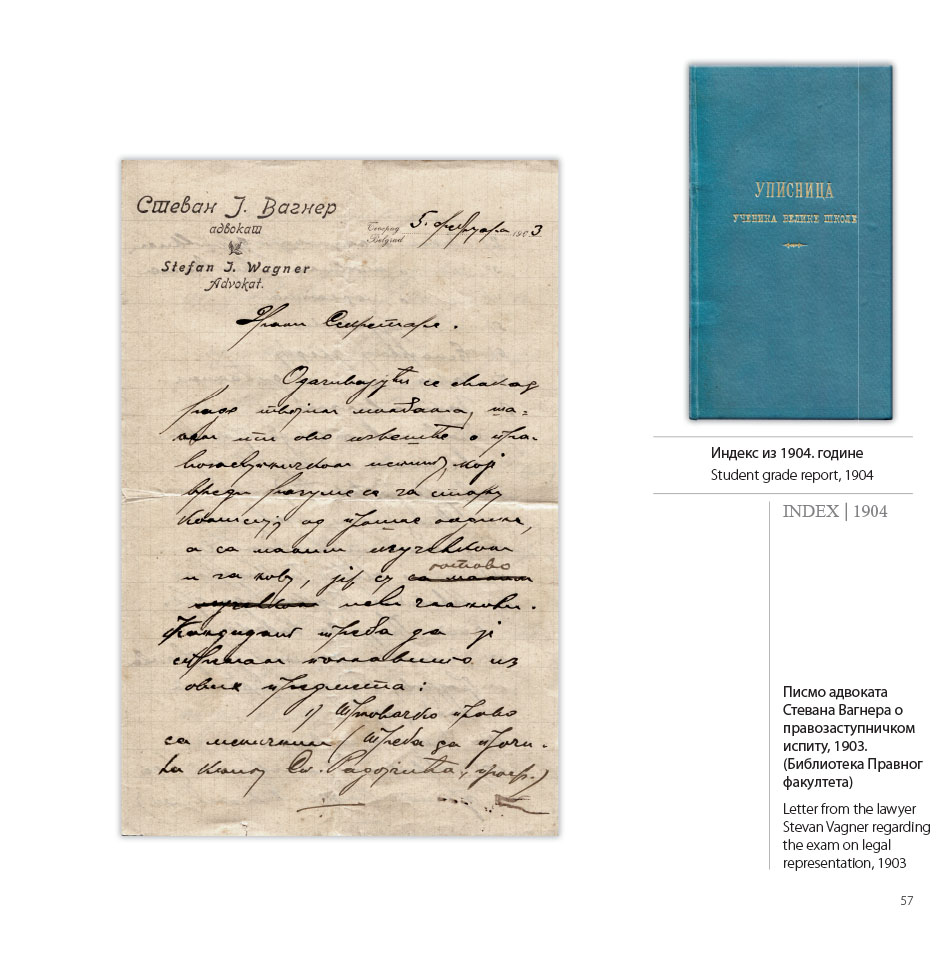 Стеван Ј. Вагнер
адвокат
Stefan J. Wagner
Advokat.
Београд
Belgrad
5. фебруара 1903
Драги Секретаре.
Одазивајући се свакад
радо твојим молбама, ша-
љем ти ово извешће о пра-
возаступничком испиту, који
вреди разуме се за стару
комисију од прошле године,
а са малим изузетком
и за нову, јер су готово са малим
изузетком исти чланови.
Кандидат треба да је
спреман поглавито из
ових предмета:
1) Трговачко право
са меничним (треба да прочи-
та књигу Св. Радојчића, проф.)
УПИСНИЦА
УЧЕНИКА ВЕЛИКЕ ШКОЛЕ
Индекс из 1904. године
Student grade report, 1904
INDEX | 1904
Писмо адвоката
Стевана Вагнера о
правозаступничком
испиту, 1903.
(Библиотека Правног
факултета)
Letter from the lawyer
Stevan Vagner regarding
the exam on legal
representation, 1903
57